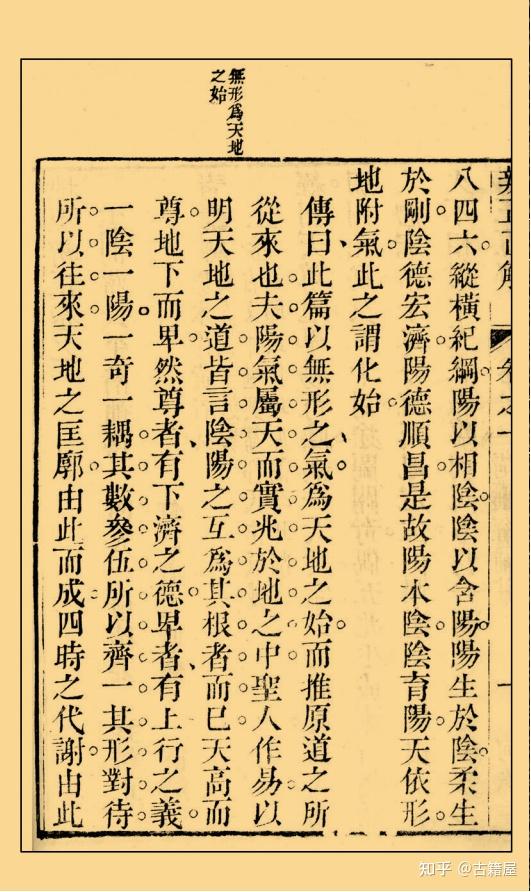 辨正直解
卷之一
一
八四六縱橫紀綱陽以相陰陰以含陽陽生於陰柔生
於剛陰德宏濟陽德順昌是故陽本陰陰育陽天依形
地附氣此之謂化始
無形爲天地
之始
傳曰此篇以無形之氣爲天地之始而推原道之所
從來也夫陽氣屬天而實兆於地之中聖人作易以
明天地之道皆言陰陽之互爲其根者而已天高而
尊地下而卑然尊者有下濟之德卑者有上行之義
一陰一陽一奇一耦其數參伍所以齊一其形對待
所以往來天地之匡廓由此而成四時之代謝由此
知乎 @古籍屋